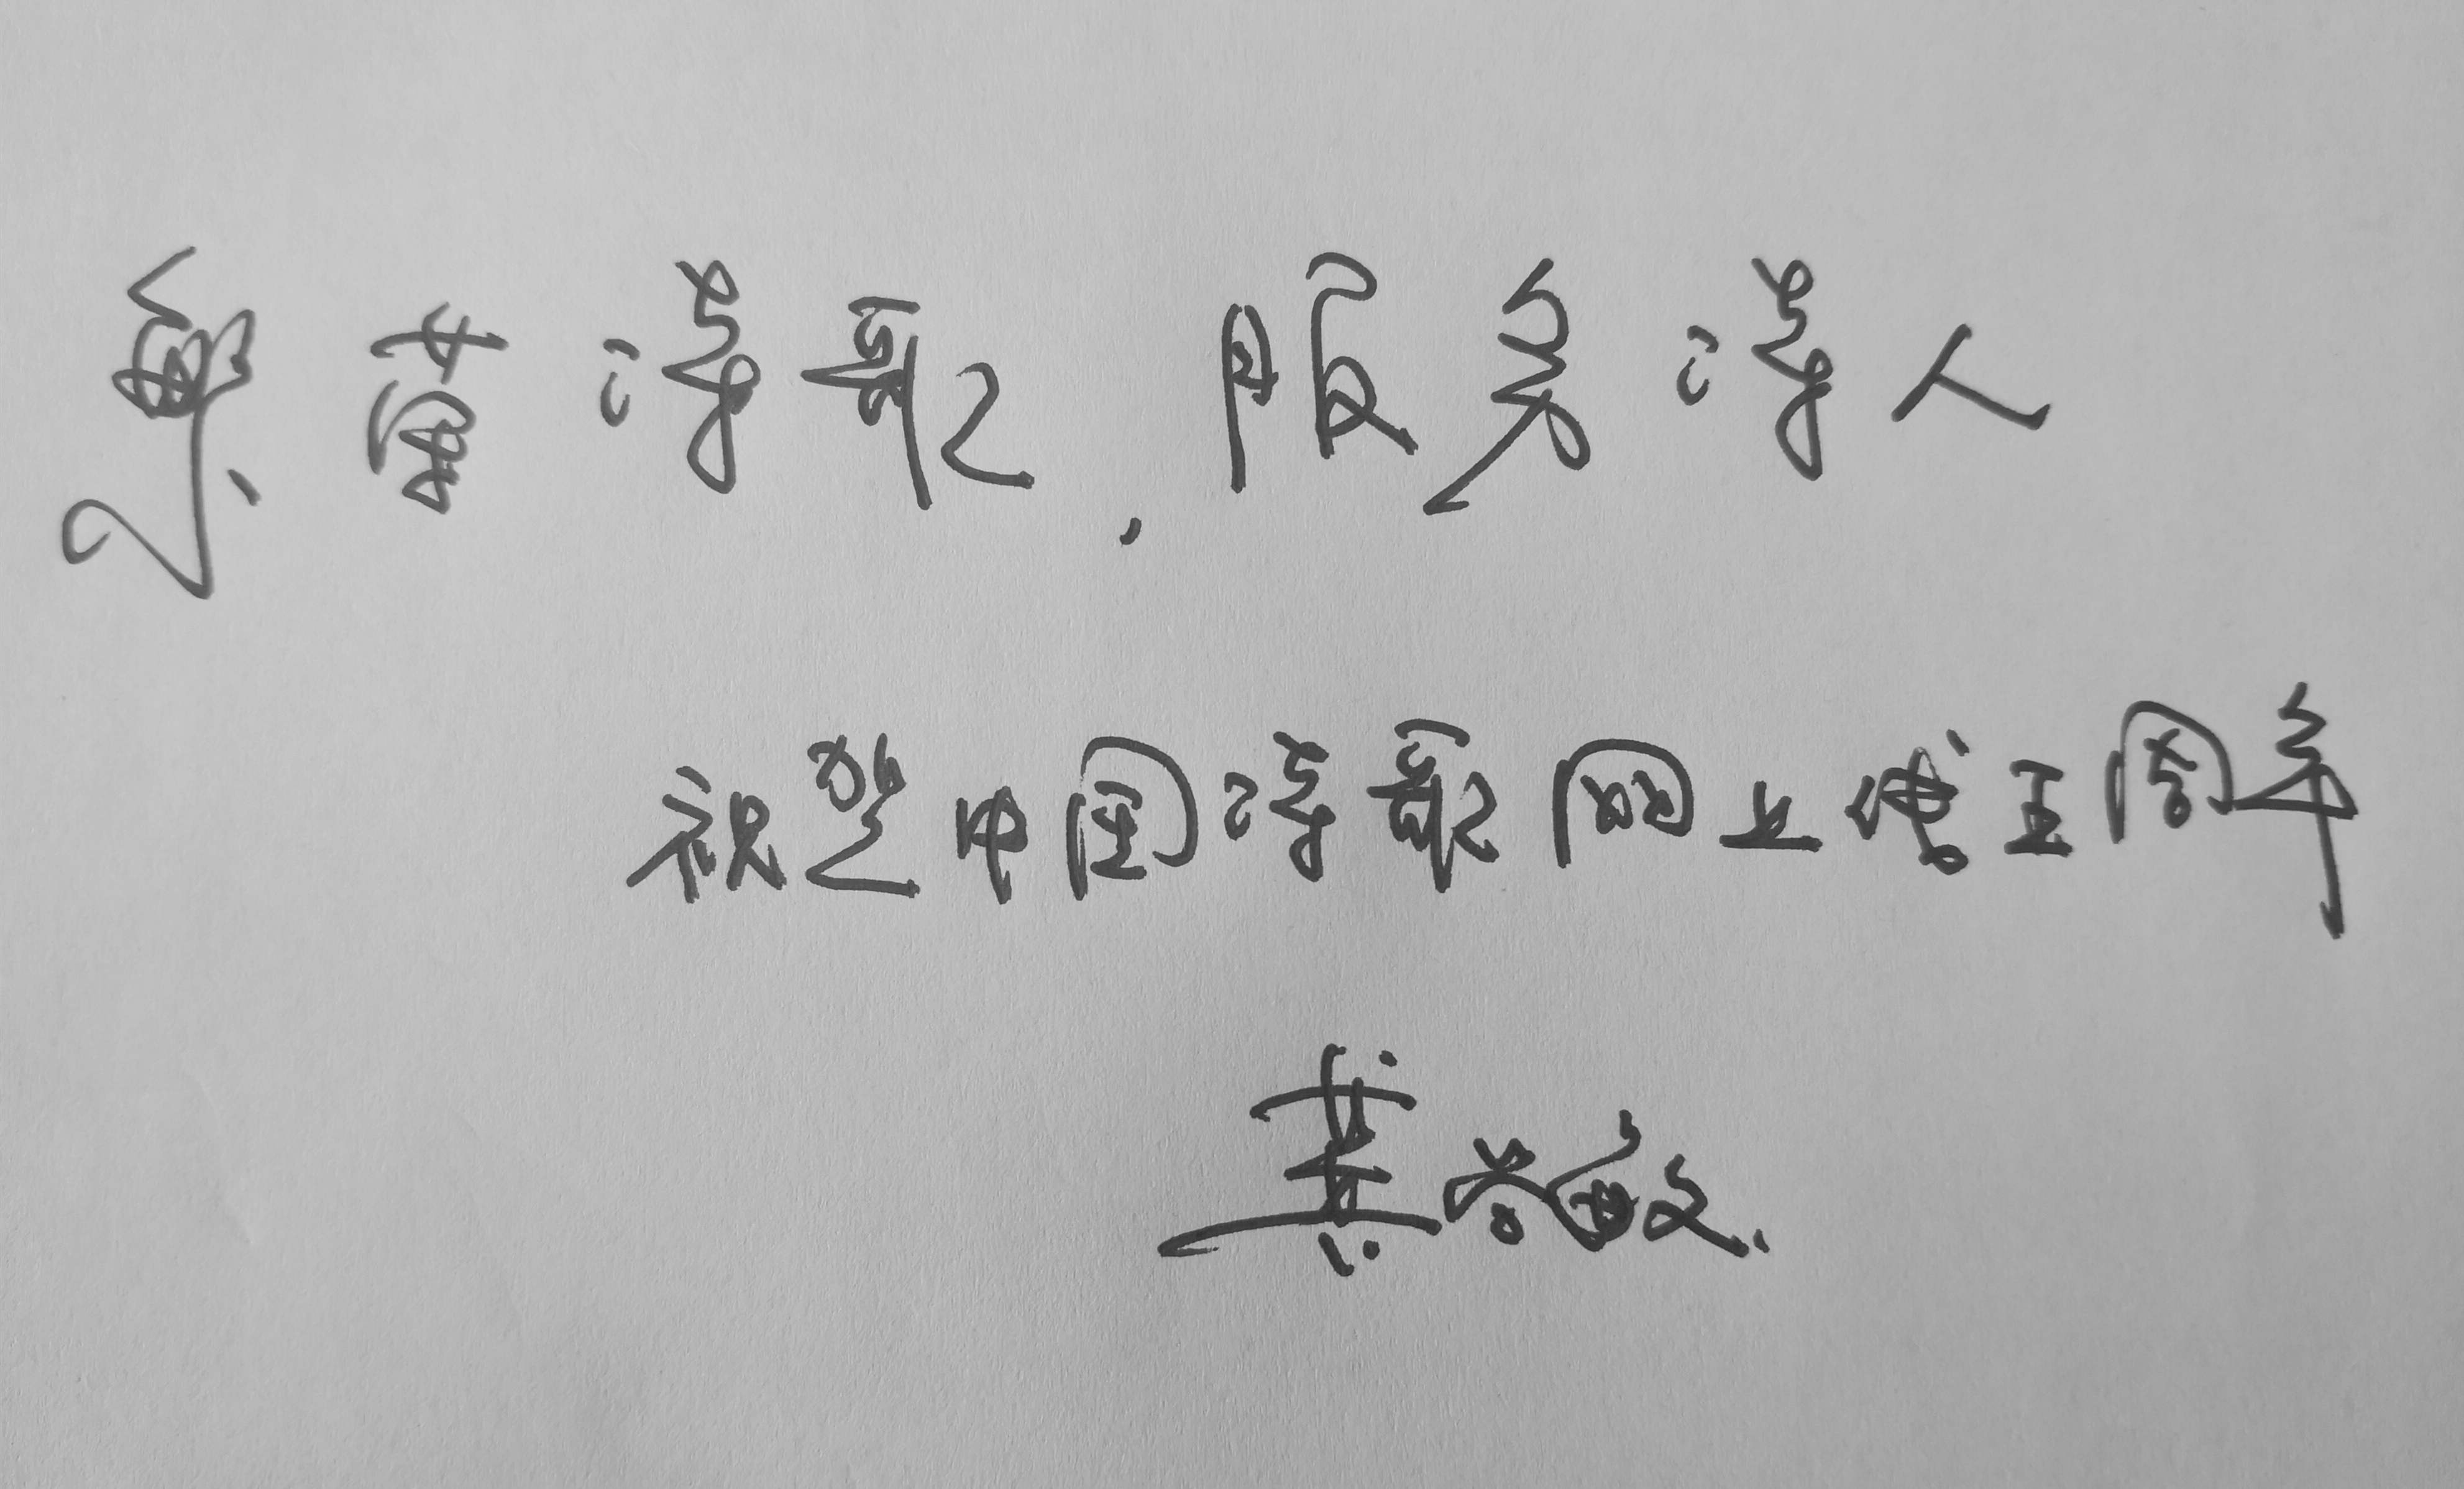 繁荣诗歌，服务诗人
祝贺中国诗歌网上线五周年
龚学敏